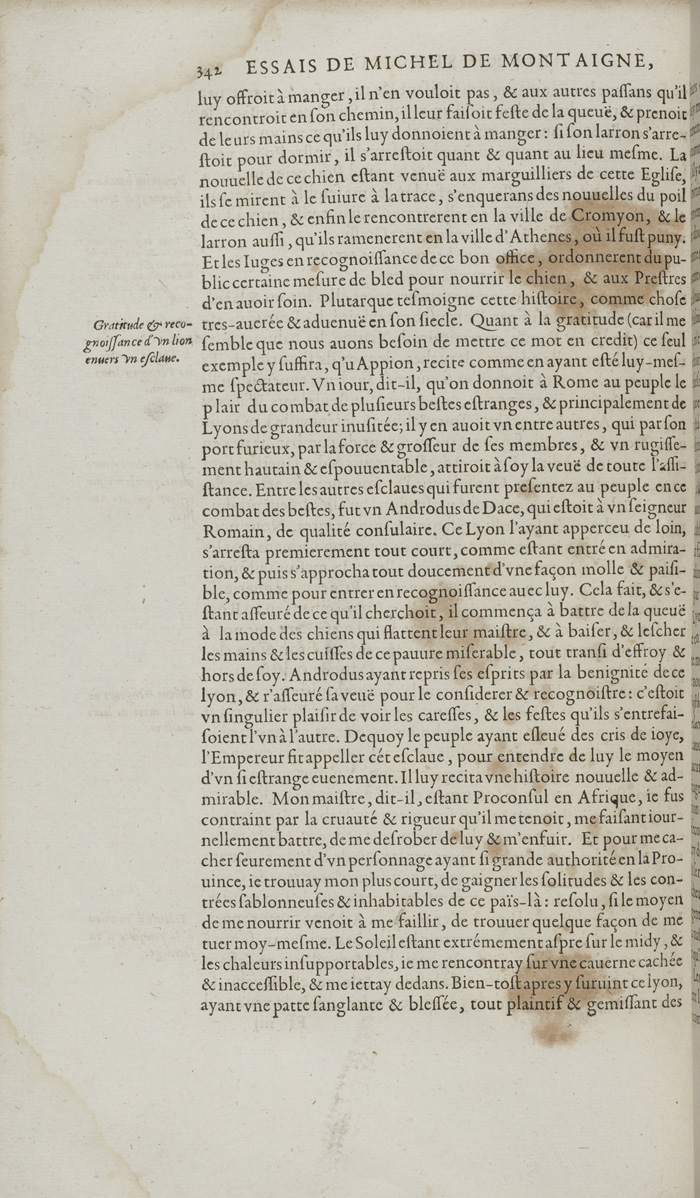 342 ESSAIS DE MICHEL DE MONTAIGNE,
luy offroit à manger, il n'en vouloit pas, & aux autres paſſans qu'il
rencontroit en ſon chemin, il leur faiſoit feſte de la queuë, & prenoit
de leurs mains ce qu'ils luy donnoient à manger: ſi ſon larron s'arre-
ſtoit pour dormir, il s'arreſtoit quant & quant au lieu meſme. La
nouuelle de ce chien eſtant venuë aux marguilliers de cette Egliſe,
ils ſe mirent à le ſuiure à la trace, s'enquerans des nouuelles du poil
de ce chien, & enfin le rencontrerent en la ville de Cromyon, & le
larron auſſi, qu'ils ramenerent en la ville d'Athenes, où il fuſt puny.
Et les Iuges en recognoiſſance de ce bon office, ordonnerent du pu-
blic certaine meſure de bled pour nourrir le chien, & aux Preſtres
d'en auoir ſoin. Plutarque teſmoigne cette hiſtoire, comme choſe
Gratitude & reco-
gnoiſſance d'vn lion
enuers vn eſclaue.
tres-auerée & aduenuë en ſon ſiecle. Quant à la gratitude (car il me
ſemble que nous auons beſoin de mettre ce mot en credit) ce ſeul
exemple y ſuffira, qu'Appion, recite comme en ayant eſté luy-meſ-
me ſpectateur. Vn iour, dit-il, qu'on donnoit à Rome au peuple le
plair du combat de pluſieurs beſtes eſtranges, & principalement de
Lyons de grandeur inuſitée; il y en auoit vn entre autres, qui par ſon
port furieux, par la force & groſſeur de ſes membres, & vn rugiſſe-
ment hautain & eſpouuentable, attiroit à ſoy la veuë de toute l'aſſi-
ſtance. Entre les autres eſclaues qui furent preſentez au peuple en ce
combat des beſtes, fut vn Androdus de Dace, qui eſtoit à vn ſeigneur
Romain, de qualité conſulaire. Ce Lyon l'ayant apperceu de loin,
s'arreſta premierement tout court, comme eſtant entré en admira-
tion, & puis s'approcha tout doucement d'vne façon molle & paiſi-
ble, comme pour entrer en recognoiſſance auec luy. Cela fait, & s'e-
ſtant aſſeuré de ce qu'il cherchoit, il commença à battre de la queuë
à la mode des chiens qui flattent leur maiſtre, & à baiſer, & leſcher
les mains & les cuiſſes de ce pauure miſerable, tout tranſi d'effroy &
hors de ſoy. Androdus ayant repris ſes eſprits par la benignité de ce
lyon, & r'aſſeuré ſa veuë pour le conſiderer & recognoiſtre: c'eſtoit
vn ſingulier plaiſir de voir les careſſes, & les feſtes qu'ils s'entrefai-
ſoient l'vn à l'autre. Dequoy le peuple ayant eſleué des cris de ioye,
l'Empereur fit appeller cét eſclaue, pour entendre de luy le moyen
d'vn ſi eſtrange euenement. Il luy recita vne hiſtoire nouuelle & ad-
mirable. Mon maiſtre, dit-il, eſtant Proconſul en Afrique, ie fus
contraint par la cruauté & rigueur qu'il me tenoit, me faiſant iour-
nellement battre, de me deſrober de luy & m'enfuir. Et pour me ca-
cher ſeurement d'vn perſonnage ayant ſi grande authorité en la Pro-
uince, ie trouuay mon plus court, de gaigner les ſolitudes & les con-
trées ſablonneuſes & inhabitables de ce païs-là: reſolu, ſi le moyen
de me nourrir venoit à me faillir, de trouuer quelque façon de me
tuer moy-meſme. Le Soleil eſtant extrémement aſpre ſur le midy, &
les chaleurs inſupportables, ie me rencontray ſur vne cauerne cachée
& inacceſſible, & me iettay dedans. Bien-toſt apres y ſuruint ce lyon,
ayant vne patte ſanglante & bleſſée, tout plaintif & gemiſſant des